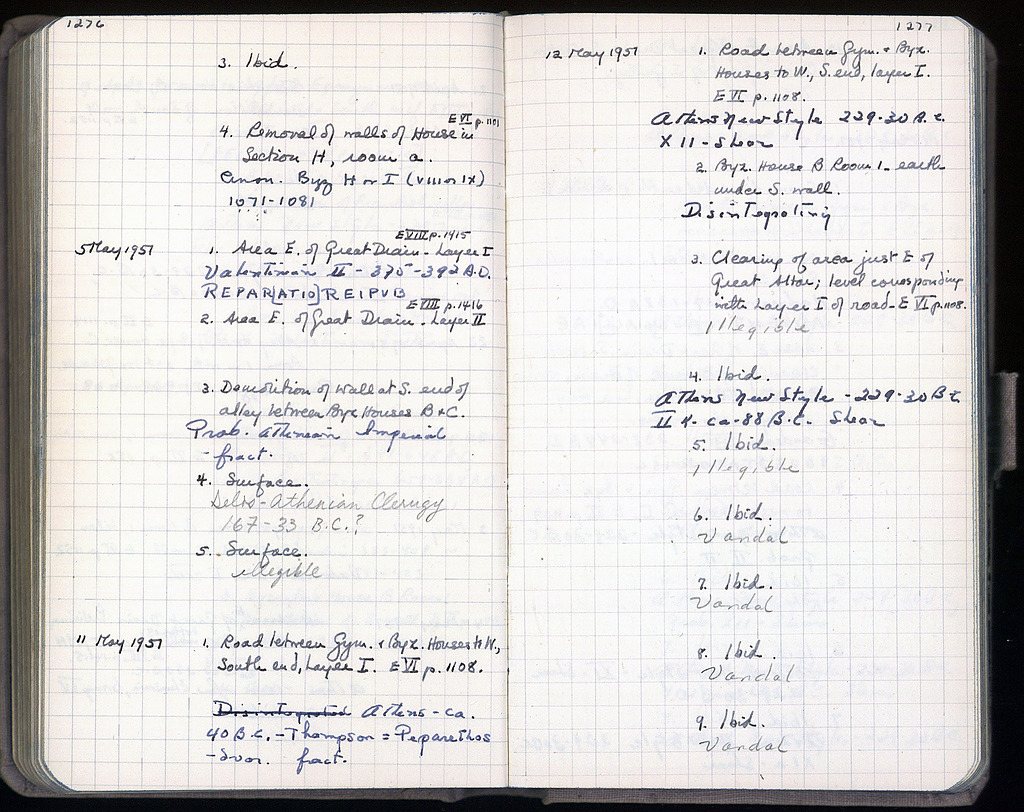 1276
3. Ibid.
E VI p. 1101
4. Removal of walls of House in
Section H, room a.
Anon. Byz H or I (VIII or IX)
1071-1081
5 May 1951
E VIII p. 1415
1. Area E. of Great Drain - Layer I
Valentinian II - 375-392 A.D.
REPAR[ATIO] REIPVB
E VIII p. 1416
2. Area E. of Great Drain - Layer II
3. Demolition of wall at S. end of
alley between Byz Houses B + C.
Prob. Athenian Imperial
- fract.
4. Surface.
Delos - Athenian Clerugy
167-33 B.C.?
5. Surface.
illegible
11 May 1951
1. Road between Gym. + Byz. Houses to W.,
South end, Layer I. E VI p. 1108.
Disintegrated Athens - ca.
40 B.C. - Thompson = Peparethos
- Svor. fract.
1277
12 May 1951
1. Road between Gym. + Byz.
Houses to W., S. end, layer I.
E VI p. 1108.
Athens New Style 229-30 B.C.
X 11 - Shear
2. Byz. House B Room 1 - earth
under S. wall.
Disintegrating
3. Clearing of area just E of
Great Altar; level corresponding
with Layer I of road - E VI p. 1108.
Illegible
4. Ibid.
Athens New Style - 229-30 B.C.
II 4. ca - 88 B.C. Shear
5. Ibid.
Illegible
6. Ibid.
Vandal
7. Ibid.
Vandal
8. Ibid.
Vandal
9. Ibid.
Vandal